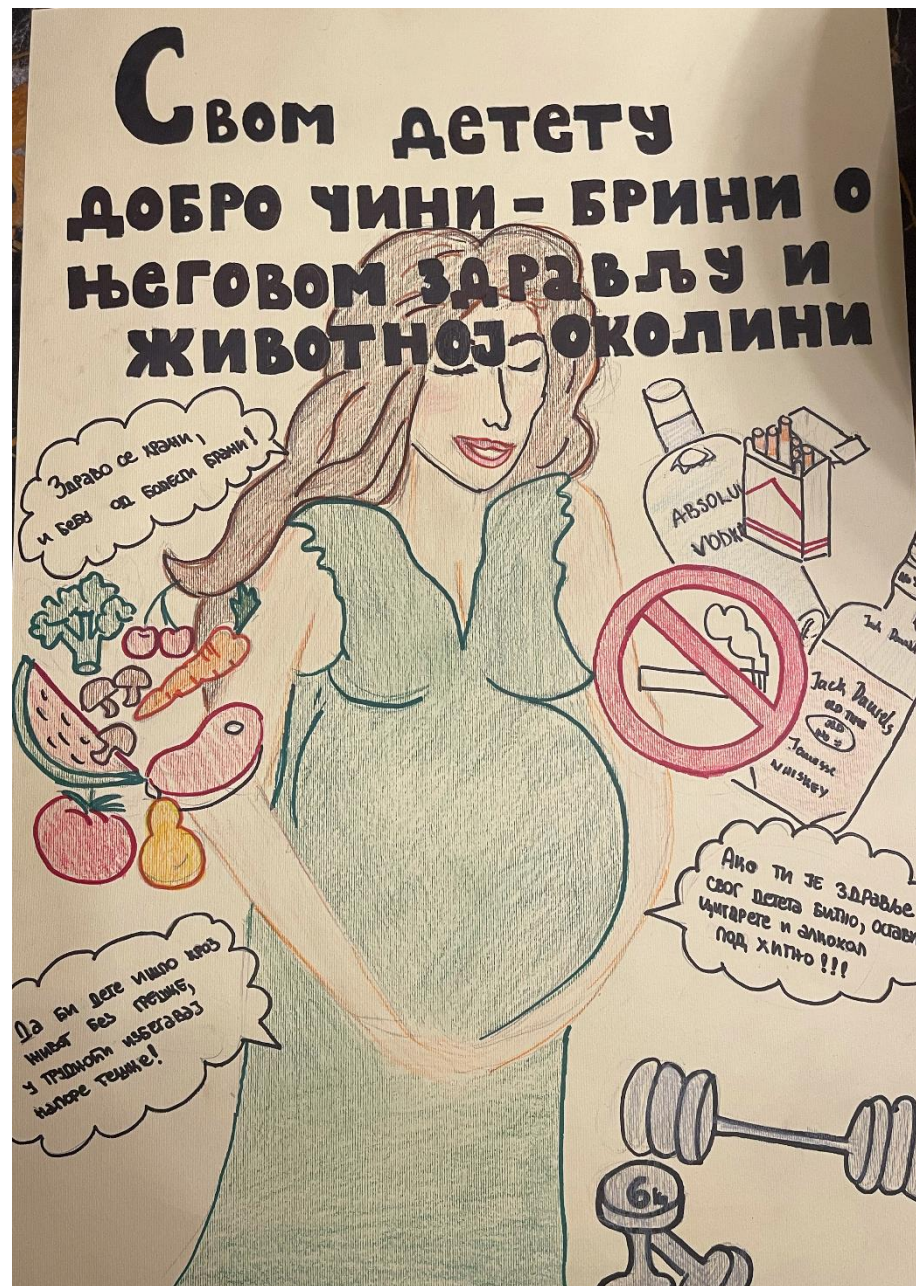 Свом детету
добро чини - брини о
његовом здрављу и
животној околини
Здраво се храни,
и бебу од болести брани!
ABSOLU
VODK
Jack Daniels
Tennesse
WHISKEY
Ако ти је здравље
свог детета битно, остави
цигарете и алкохол
под хитно!!!
Да би дете ишло кроз
живот без грешке,
у трудноћи избегавај
напоре тешке!
6 kg